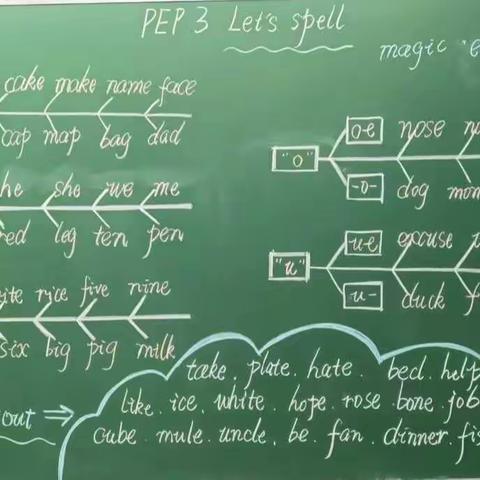 PEP 3 Let's spell
magic "e
cake make name face
cap map bag dad
he she we me
red leg ten pen
ite rice five nine
six big pig milk
"o" o-e nose
-o- dog
"u" u-e excuse
-u- duck
out ⇒
take, plate. hate. bed. help
like. ice. white. hope. rose. bone. job
cube. mule. uncle, be. fan. dinner.